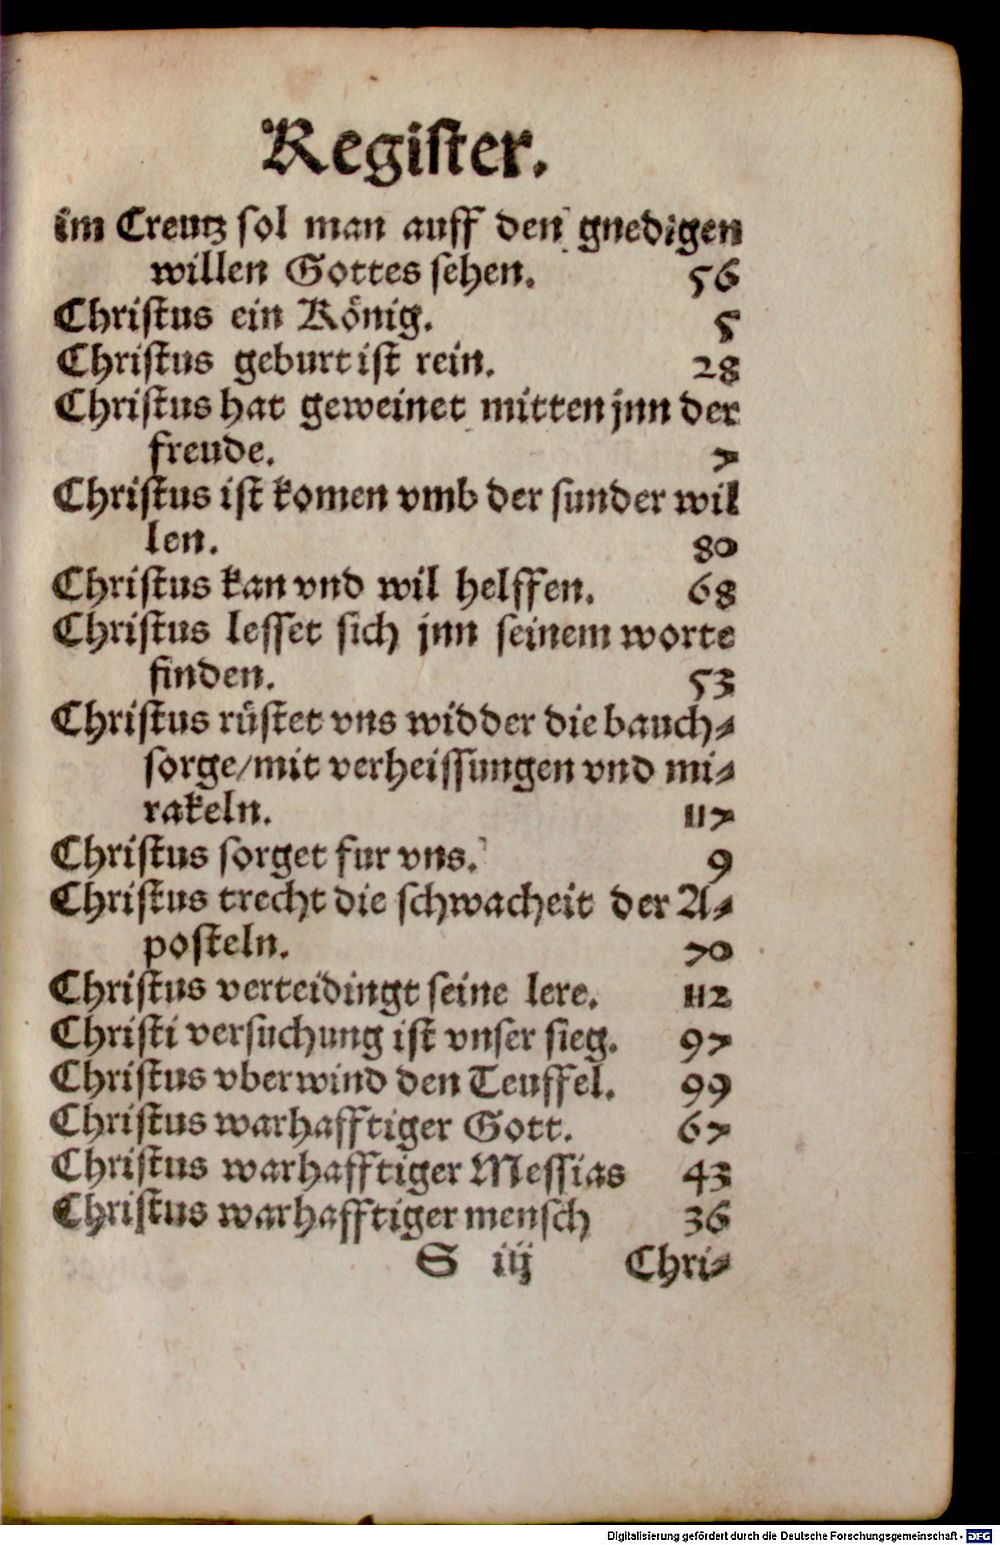 Register.
im Creutz sol man auff den gnedigen
willen Gottes sehen. 56
Christus ein König. 5
Christus geburt ist rein. 28
Christus hat geweinet mitten jnn der
freude. 7
Christus ist komen vmb der sunder wil
len. 80
Christus kan vnd wil helffen. 68
Christus lesset sich jnn seinem worte
finden. 53
Christus rüstet vns widder die bauch⸗
sorge/mit verheissungen vnd mi⸗
rakeln. 117
Christus sorget fur vns. 9
Christus trecht die schwacheit der A⸗
posteln. 70
Christus verteidingt seine lere. 112
Christi versuchung ist vnser sieg. 97
Christus vberwind den Teuffel. 99
Christus warhafftiger Gott. 67
Christus warhafftiger Messias 43
Christus warhafftiger mensch 36
S iij Chri⸗
Digitalisierung gefördert durch die Deutsche Forschungsgemeinschaft - DFG